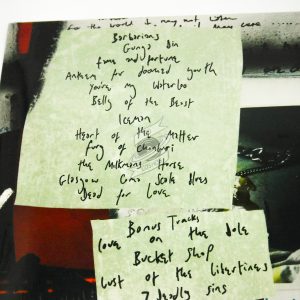 to the world I may not
Barbarians
Gunga Din
fame and fortune
Anthem for doomed youth
You're my Waterloo
Belly of the Beast
Iceman
Heart of the Matter
fury of chonburi
the Milkmans Horse
Glasgow Coma Scale Blues
Dead for Love
Bonus Tracks
love on the dole
Bucket Shop
Lust of the libertines
7 deadly sins